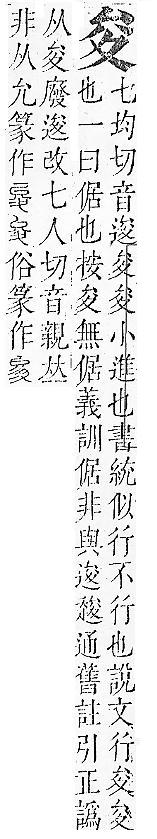 夋
七均切音逡夋夋小進也書統似行不行也說文行夋夋
也一曰倨也按夋無倨義訓倨非與逡竣通舊註引正譌
从夋廢逡改七人切音親𠀤
非从允篆作俗篆作